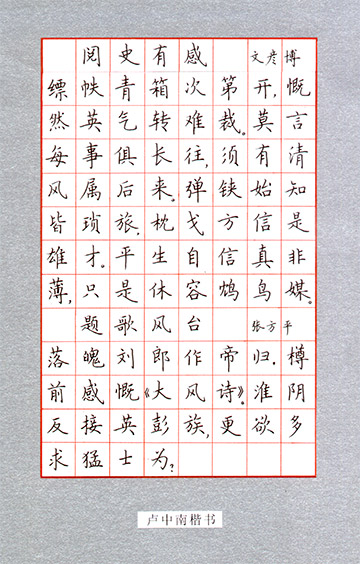 阅史有感 文彦博
缥帙青箱次第开,慨
然英气转难裁。莫言
每事俱长往,须有清
风属后来。弹铗始知
皆琐旅,枕戈方信是
雄才。平生自信真非
薄,只是休容鸩鸟媒。
题歌风台 张方平
落魄刘郎作帝归,樽
前感慨《大风诗》。淮阴
反接英彭族,更欲多
求猛士为?
卢中南楷书